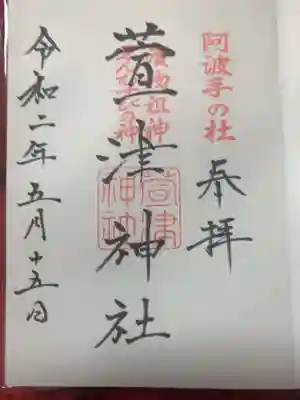 阿波手の杜
奉拝
萱津神社
令和二年五月十五日